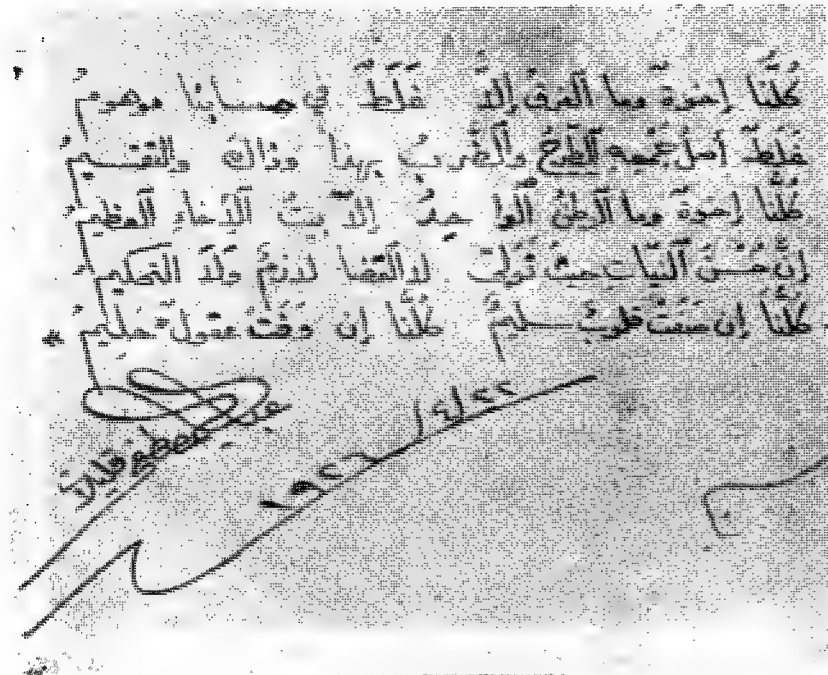 كُلُّنا إخوةٌ وما الفرقُ إلَّا غَلَطٌ في حسابِنا موهومُ
غَلَطٌ أصلُ جمعِه الطَّرحُ والضَّربُ بهذا وذاك والتقسيمُ
كُلُّنا إخوةٌ وما الوطنُ الوا حدُ إلَّا بيتُ الإخاءِ العظيمُ
إنَّ حُسْنَ النيَّاتِ حيثُ تولَّت لا القضا لازمٌ ولا التحكيمُ
كُلُّنا إن صَفَتْ قلوبٌ سليمٌ كُلُّنا إن وَفَتْ عقولٌ حليمُ
عبد قليلات
١٩٢٦/٤/٢٢